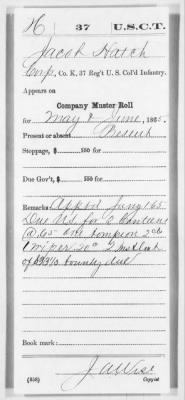 H 37 U.S.C.T.
Jacob Hatch
Corp, Co. K, 37 Reg't U. S. Col'd Infantry.
Appears on
Company Muster Roll
for May & June, 1865.
Present or absent Present
Stoppage, $ 100 for
Due Gov't, $ 100 for
Remarks: Appd Jany 1 65
Due U.S. for Canteen
@ 65 one tompion 20c
1 wiper 20c 2 Inst
of bounty due
Book mark:
J A Wise
(858) Copyist.